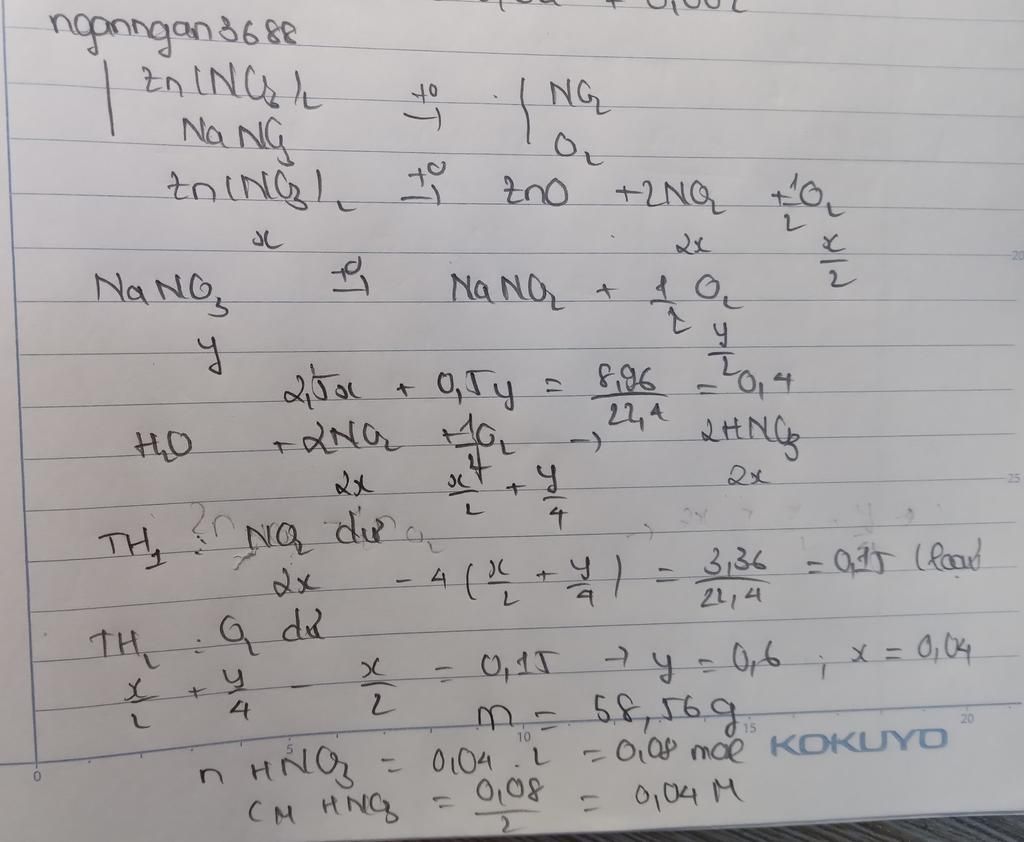 + 0,002
nganngan3688
Zn(NO3)2 →t° NO2
NaNO3 O2
Zn(NO3)2 →t° ZnO + 2NO2 + 1/2 O2
x 2x x/2
NaNO3 →t° NaNO2 + 1/2 O2
y y/2
2,5x + 0,5y = 8,96/22,4 = 0,4
H2O + 2NO2 + 1/2 O2 → 2HNO3
2x x/2 + y/4 2x
TH1 : NO2 dư
2x - 4(x/2 + y/4) = 3,36/22,4 = 0,15 (loại)
TH2 : O2 dư
x/2 + y/4 - x/2 = 0,15 → y = 0,6 ; x = 0,04
m = 58,56g
n HNO3 = 0,04 . 2 = 0,08 mol
CM HNO3 = 0,08/2 = 0,04 M
KOKUYO
0 5 10 15 20
20
25